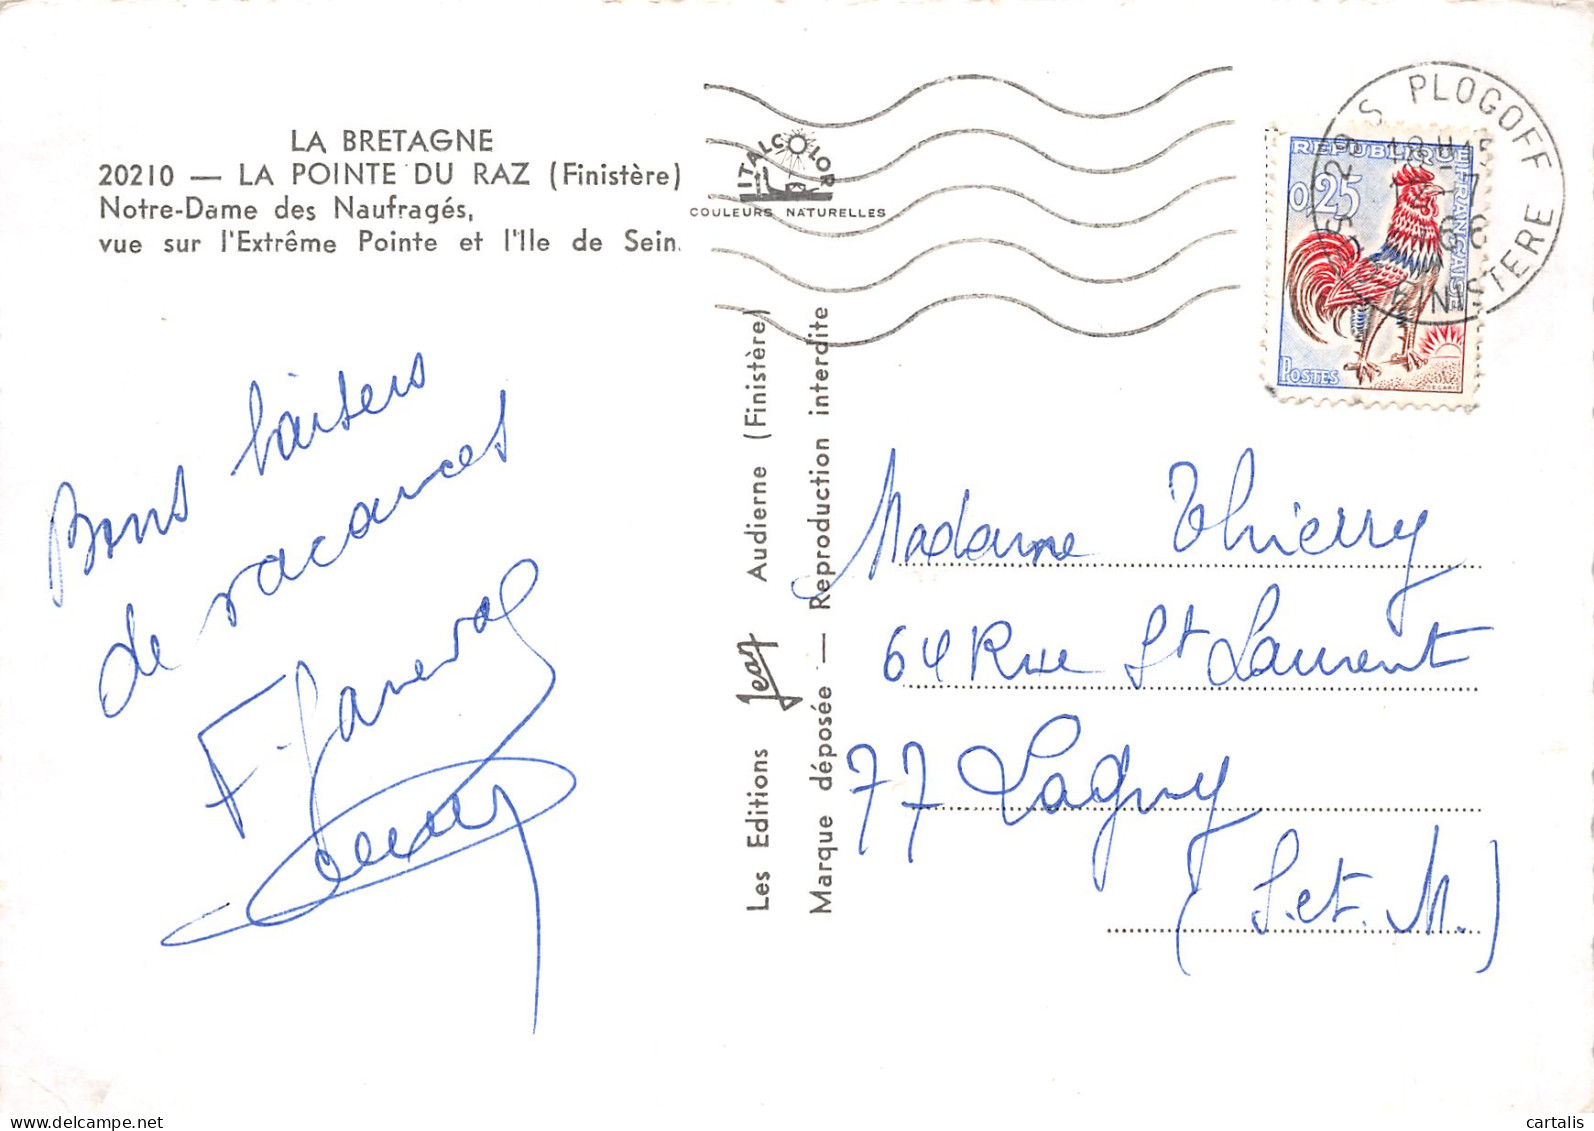 LA BRETAGNE
20210 — LA POINTE DU RAZ (Finistère)
Notre-Dame des Naufragés,
vue sur l'Extrême Pointe et l'Ile de Sein.
ITALCOLOR
COULEURS NATURELLES
PLOGOFF
FINISTERE
REPUBLIQUE FRANÇAISE
0,25
POSTES
Bons baisers
de vacances
Les Editions Jean Audierne (Finistère)
Marque déposée — Reproduction interdite
Madame Thierry
64 Rue St Laurent
77 Lagny
(S.et.M.)
cartalis